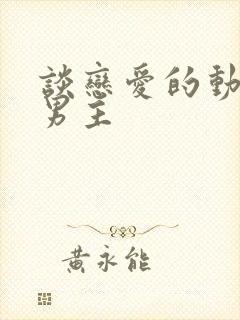 談戀愛的動
男主
黃永能